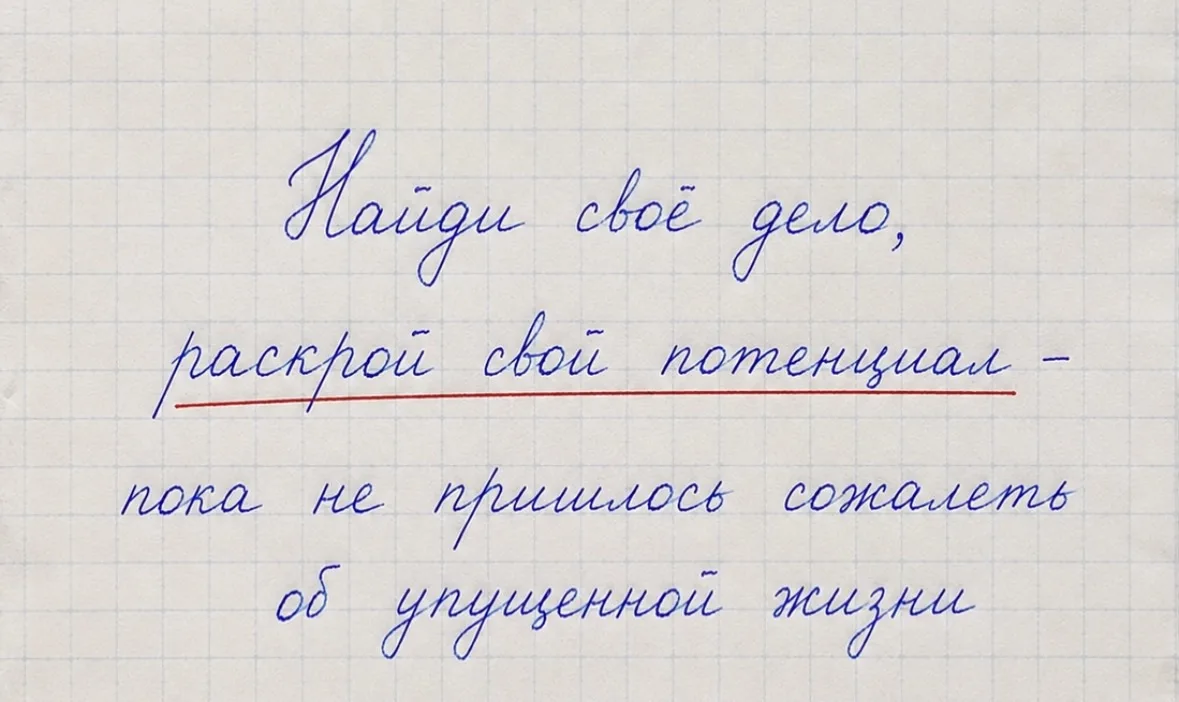 Найди своё дело,
раскрой свой потенциал –
пока не пришлось сожалеть
об упущенной жизни